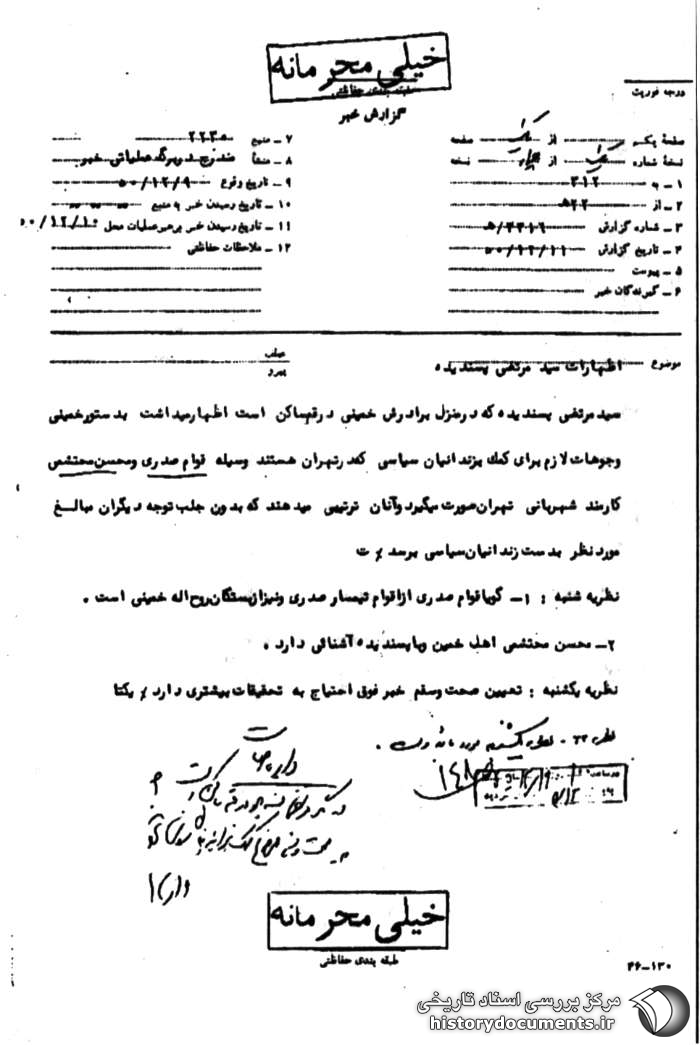 خیلی محرمانه
طبقه بندی حفاظتی
گزارش خبر
درجه فوریت
صفحه یکم از یک صفحه
نسخه شماره یک از چهار نسخه
۱ - به ۳۱۲
۲ - از ۲۲ﻫ
۳ - شماره گزارش
۴ - تاریخ گزارش ۵۰/۱۲/۱۱
۵ - پیوست
۶ - گیرندگان خبر
۷ - منبع ۲۲۳۵
۸ - منشأ مندرج در برگ عملیاتی خبر
۹ - تاریخ وقوع ۵۰/۱۲/۹
۱۰ - تاریخ رسیدن خبر به منبع
۱۱ - تاریخ رسیدن خبر برهبر عملیات محل ۵۰/۱۲/۱۰
۱۲ - ملاحظات حفاظتی
موضوع اظهارات سید مرتضی پسندیده
عطف
پیرو
سید مرتضی پسندیده که در منزل برادرش خمینی در قم ساکن است اظهار میداشت بدستور خمینی
وجوهات لازم برای کمک بزندانیان سیاسی که در تهران هستند وسیله قوام صدری و محسن محتشمی
کارمند شهربانی تهران صورت میگیرد و آنان ترتیبی میدهند که بدون جلب توجه دیگران مبالغ
مورد نظر بدست زندانیان سیاسی برسد٪ ت
نظریه شنبه : ۱- گویا قوام صدری از اقوام تیمسار صدری و نیز از بستگان روح اله خمینی است .
۲- محسن محتشمی اهل خمین و با پسندیده آشنائی دارد .
نظریه یکشنبه : تعیین صحت و سقم خبر فوق احتیاج به تحقیقات بیشتری دارد٪ یکتا
نظریه ۲۲ - نظریه یکشنبه مورد تائید است .
خیلی محرمانه
طبقه بندی حفاظتی
۲۶-۱۳۰
مرکز بررسی اسناد تاریخی
historydocuments.ir